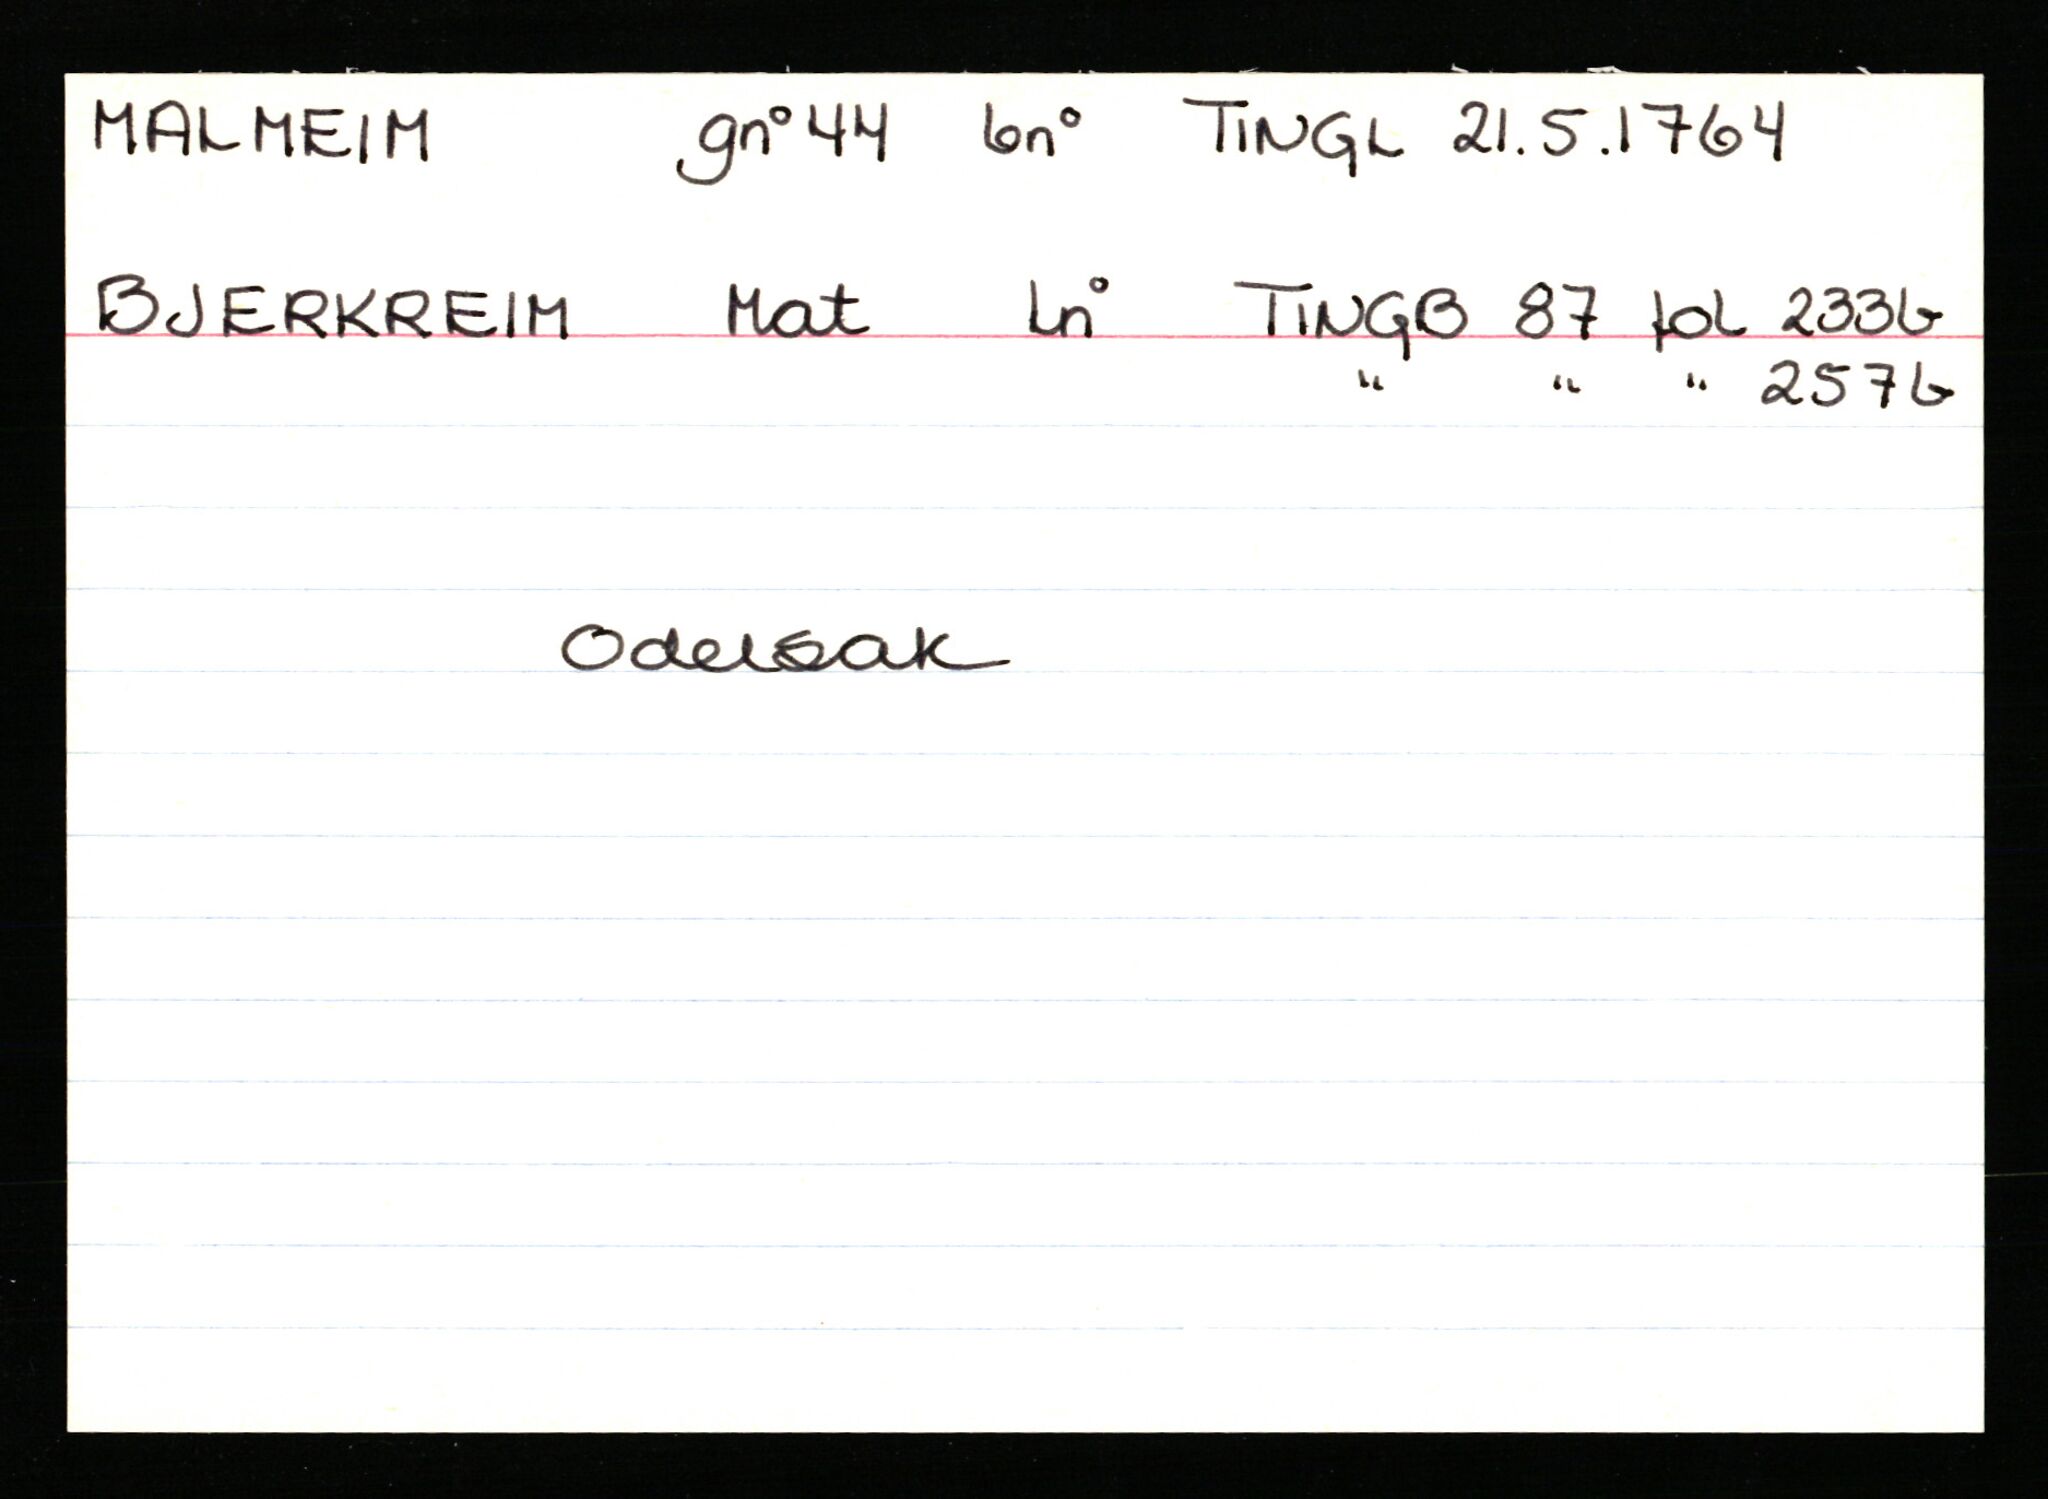 MALMEIM gn° 44 bn° TINGL 21.5.1764
BJERKREIM Mat Ln° TINGB 87 fol 233b
" " " 257b
Odelsak